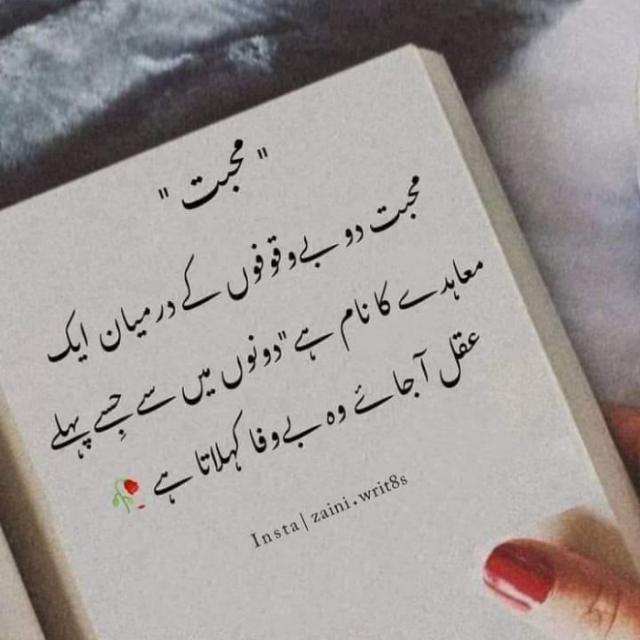 " محبت "
محبت دو بےوقوفوں کے درمیان ایک
معاہدے کا نام ہے "دونوں میں سے جسے پہلے
عقل آ جائے وہ بےوفا کہلاتا ہے 🥀
Insta|zaini.writ8s